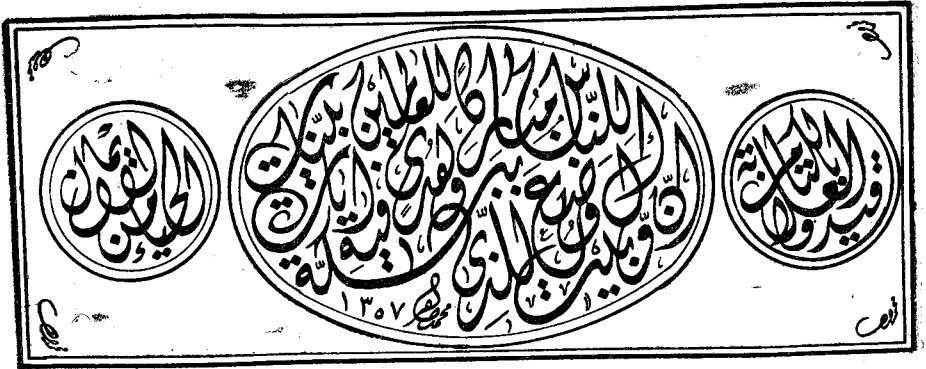 قيدوا العلم بالكتابة
إن أول بيت وضع للناس للذي ببكة مباركا وهدى للعالمين فيه آيات بينات
محمد طاهر ١٣٥٧
الحياء من الإيمان